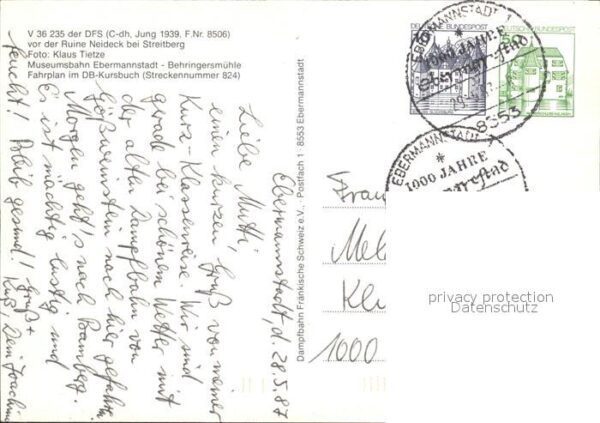 V 36 235 der DFS (C-dh, Jung 1939, F.Nr. 8506)
vor der Ruine Neideck bei Streitberg
Foto: Klaus Tietze
Museumsbahn Ebermannstadt - Behringersmühle
Fahrplan im DB-Kursbuch (Streckennummer 824)
Ebermannstadt, d. 28.5.87
Liebe Mutti,
einen kurzen Gruß von meiner
Kurz-Klassenreise. Wir sind
gerade bei schönem Wetter mit
der alten Dampfbahn von
Gößweinstein nach hier gefahren.
Morgen geht's nach Bamberg.
Es ist mächtig lustig und
feucht! Bleib gesund! Gruß +
Kuß, Dein Joachim
Dampfbahn Fränkische Schweiz e.V., Postfach 1 8553 Ebermannstadt
DEUTSCHE BUNDESPOST
BUNDESPOST
EBERMANNSTADT 1
1000 JAHRE
8553
EBERMANNSTADT 1
1000 JAHRE
Frau
Mel
Kl
1000
privacy protection
Datenschutz